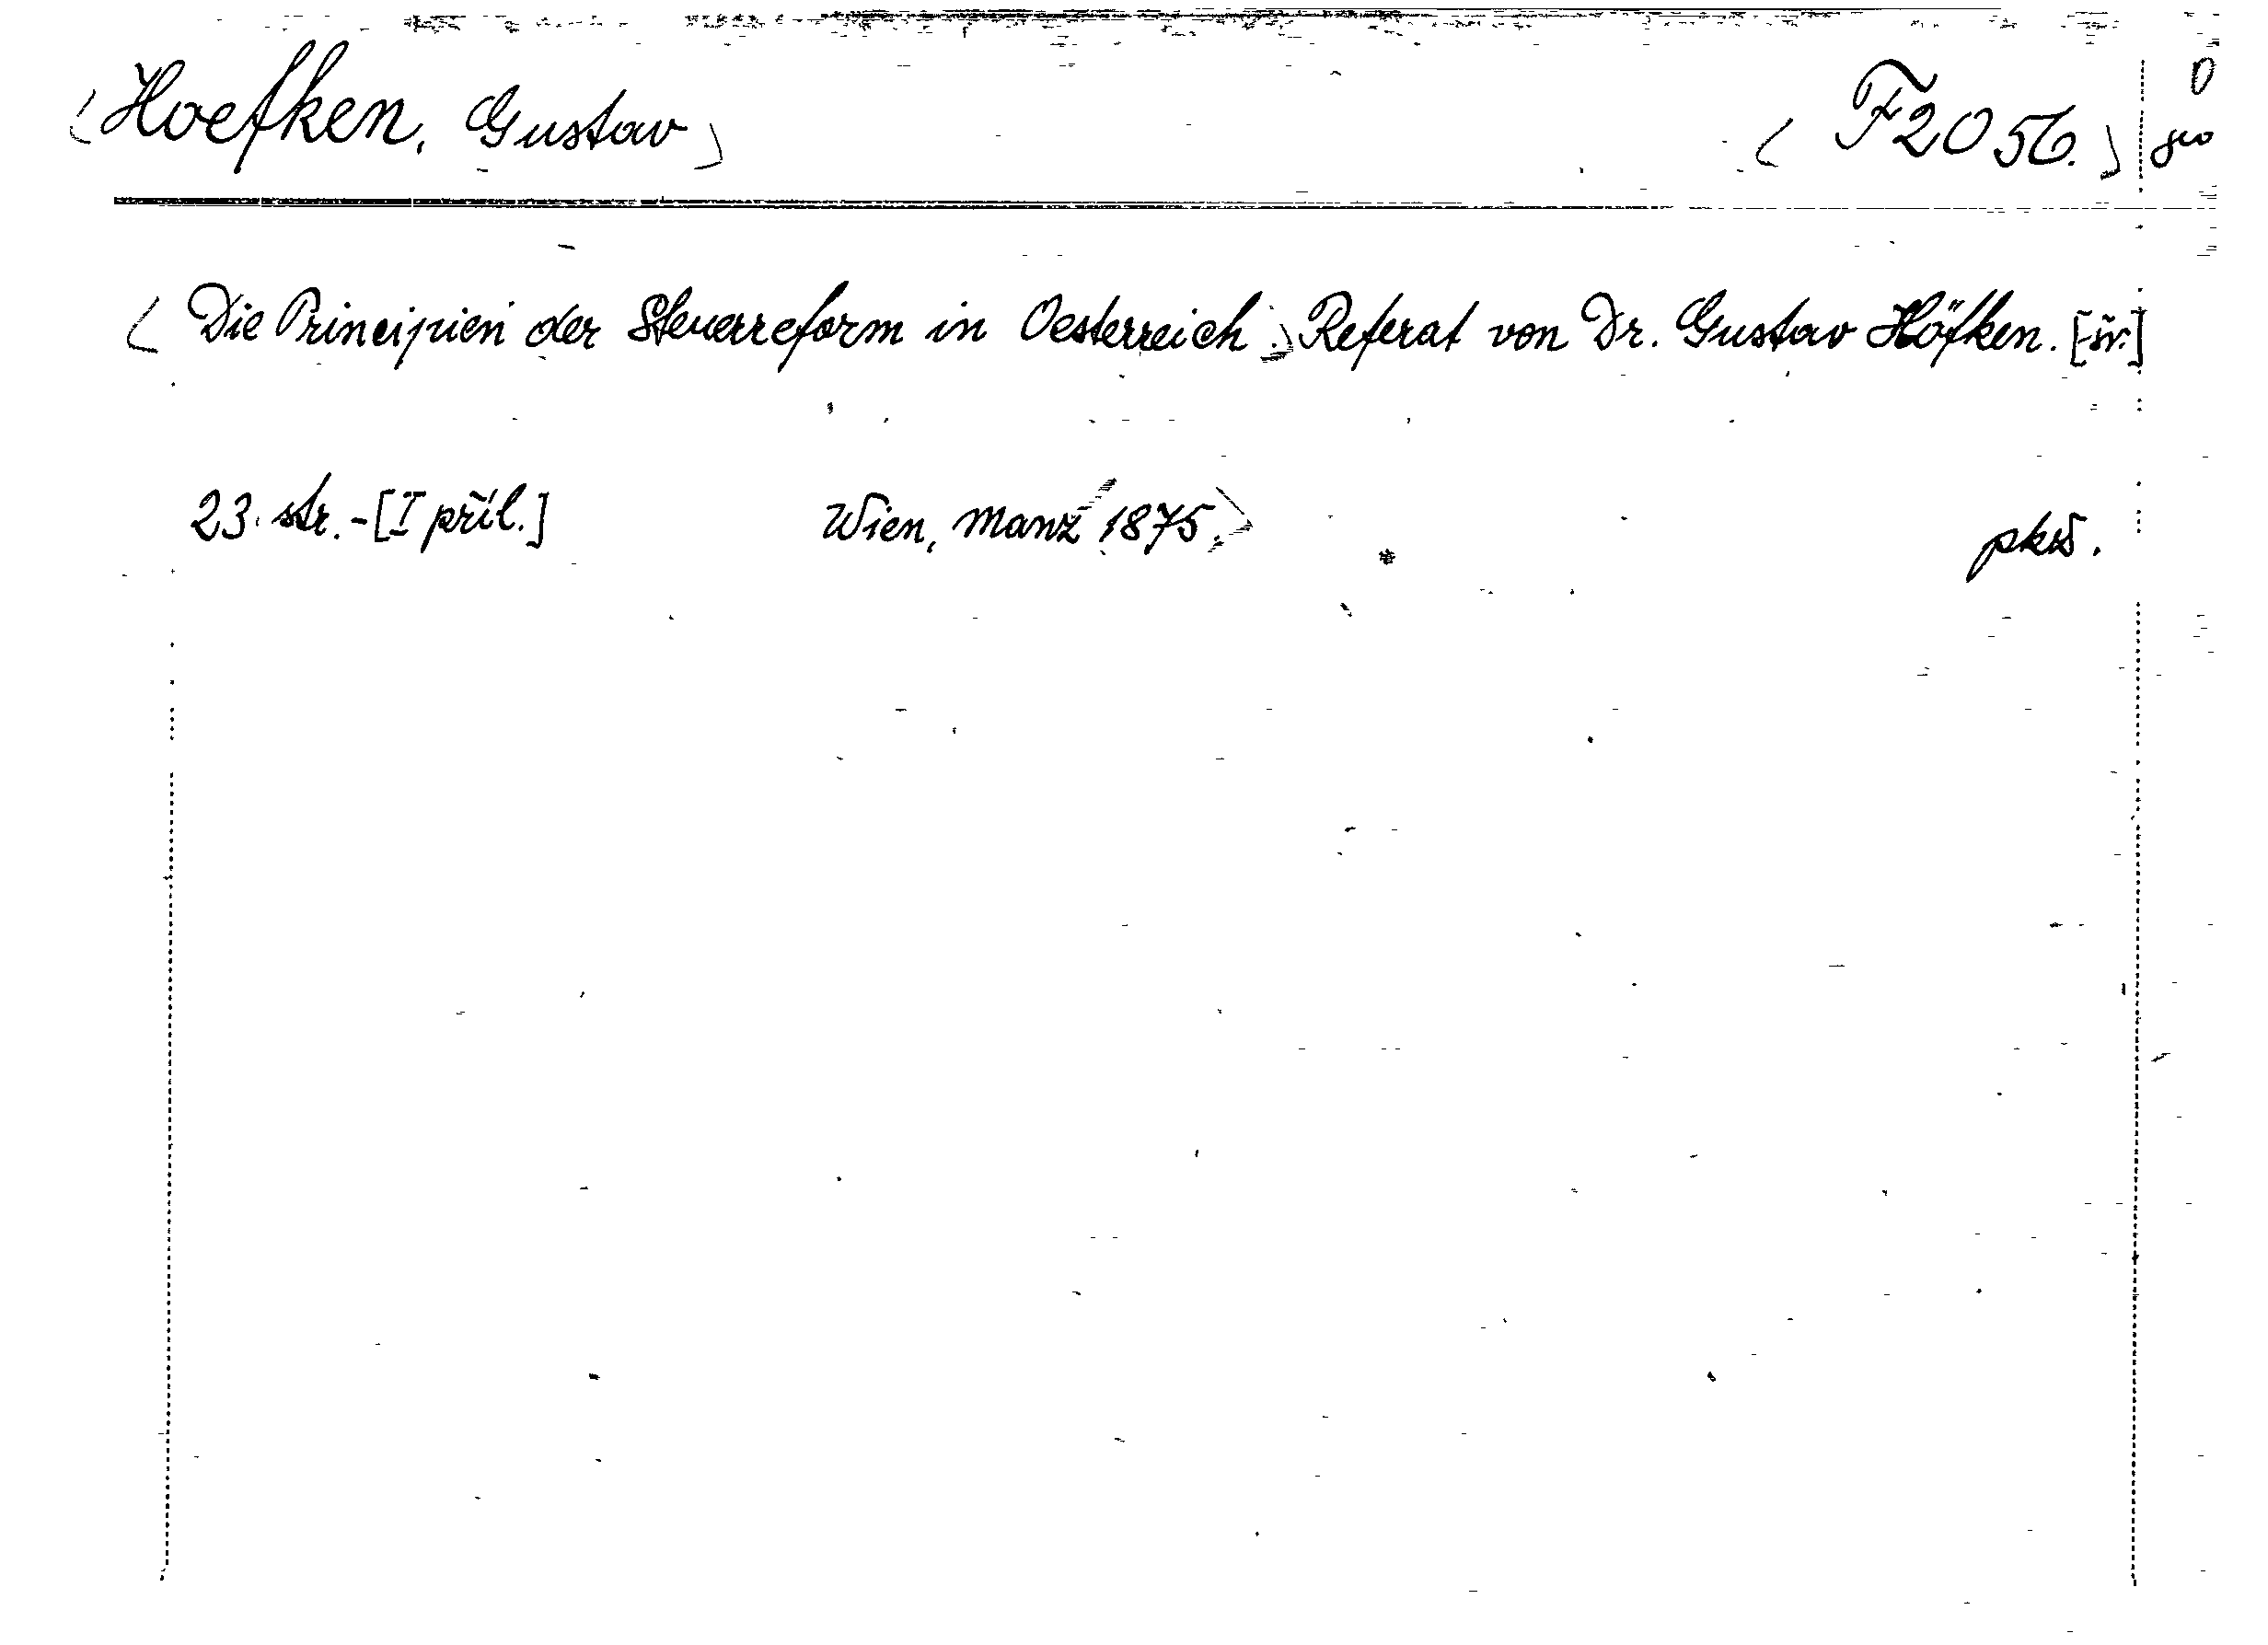 Hoefken, Gustav F 2056.
Die Principien der Steuerreform in Oesterreich. Referat von Dr. Gustav Höfken. [-šv.]
23 str. - [I příl.] Wien, Manz 1875.